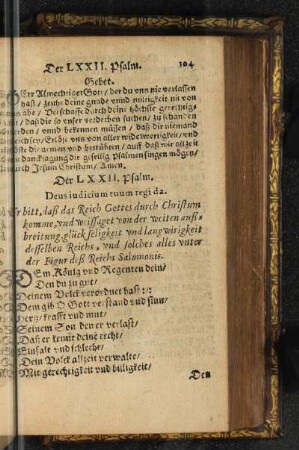 Der LXXII. Psalm. 104
Gebet.
HErr Allmechtiger Gott/ der du vns nie verlassen
hast/ zeuhe deine gnade vnnd
Verschaffe durch deine höchste gerechtig-
daß die so vnser verderben suchen/ zu schanden
werden/ vnnd bekennen müssen/ daß dir niemand
Erlöse vns von aller widerwertigkeit/ vnd
die armen vnd betrübten/ auff daß wir allzeit
dancksagung dir gefellig Psalmen singen mögen/
durch Jesum Christum/ Amen.
Der LXXII. Psalm.
Deus iudicium tuum regi da.
Er bitt, daß das Reich Gottes durch Christum
komme, vnd weissaget von der weiten auß-
breitung, glückseligkeit vnd langwirigkeit
desselben Reichs, vnd solches alles vnter
der Figur deß Reichs Salomonis.
Em König vnd Regenten dein/
Den du zu gut/
Deinem Volck verordnet hast :/:
Dem gib O Gott verstand vnd sinn/
hertz/ krafft vnd mut/
Seinem Son den er verlast/
Daß er kennt deine recht/
Einfalt vnd schlecht/
Dein Volck allzeit verwalte/
Mit gerechtigkeit vnd billigkeit/
Den